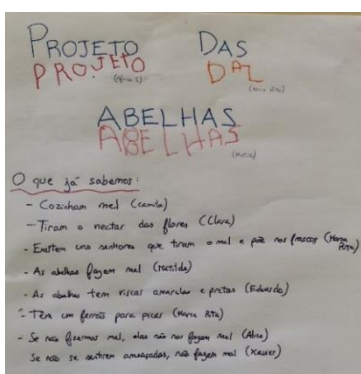 PROJETO DAS
PROJETO DAL
(Maria Rita)
ABELHAS
ABELHAS
O que já sabemos:
- Cozinham mel (Camila)
- Tiram o nectar das flores (Clara)
- Existem uns senhores que tiram o mel e põe nos frascos (Maria Rita)
- As abelhas fazem mel (Matilde)
- As abelhas tem riscas amarelas e pretas (Eduardo)
- Têm um ferrão para picar (Maria Rita)
- Se não fizermos mal, elas não nos fazem mal (Alice)
Se não se sentirem ameaçadas, não fazem mal (Xavier)